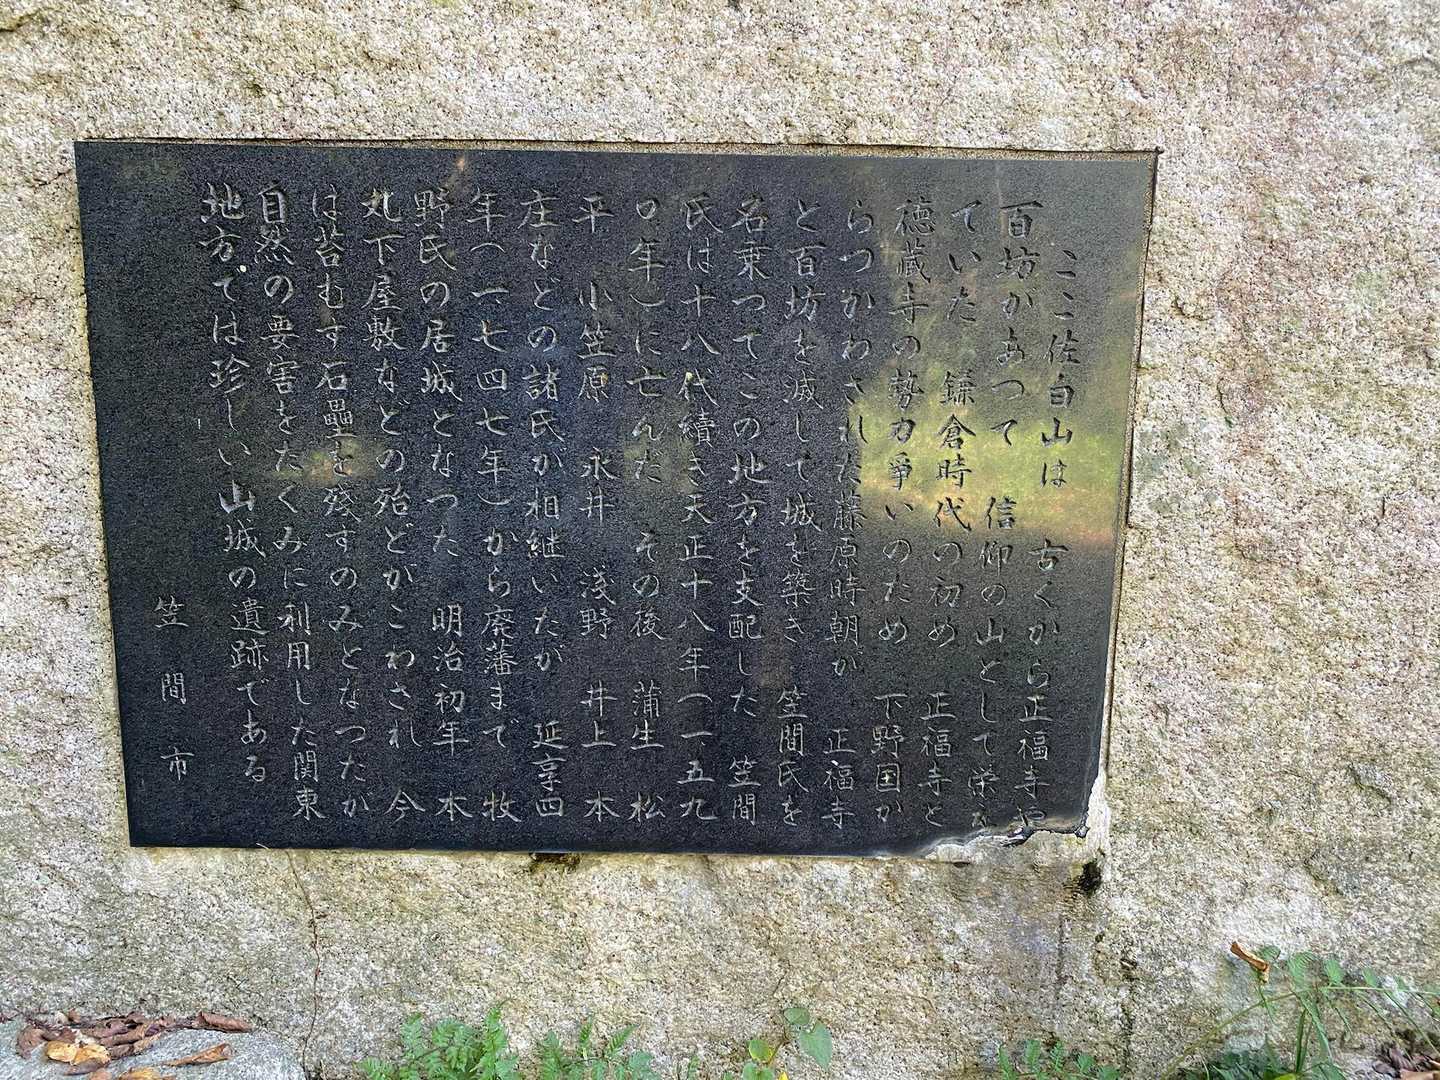 ここ佐白山は 古くから正福寺や
百坊があつて 信仰の山として栄え
ていた 鎌倉時代の初め 正福寺と
徳蔵寺の勢力爭いのため 下野国か
らつかわされた藤原時朝が 正福寺
と百坊を滅して城を築き 笠間氏を
名乗つてこの地方を支配した 笠間
氏は十八代続き天正十八年(一、五九
〇年)に亡んだ その後 蒲生 松
平 小笠原 永井 浅野 井上 本
庄などの諸氏が相継いたが 延享四
年(一、七四七年)から廃藩まで 牧
野氏の居城となつた 明治初年 本
丸下屋敷などの殆どがこわされ 今
は苔むす石壘を残すのみとなつたが
自然の要害をたくみに利用した関東
地方では珍しい山城の遺跡である
笠間市